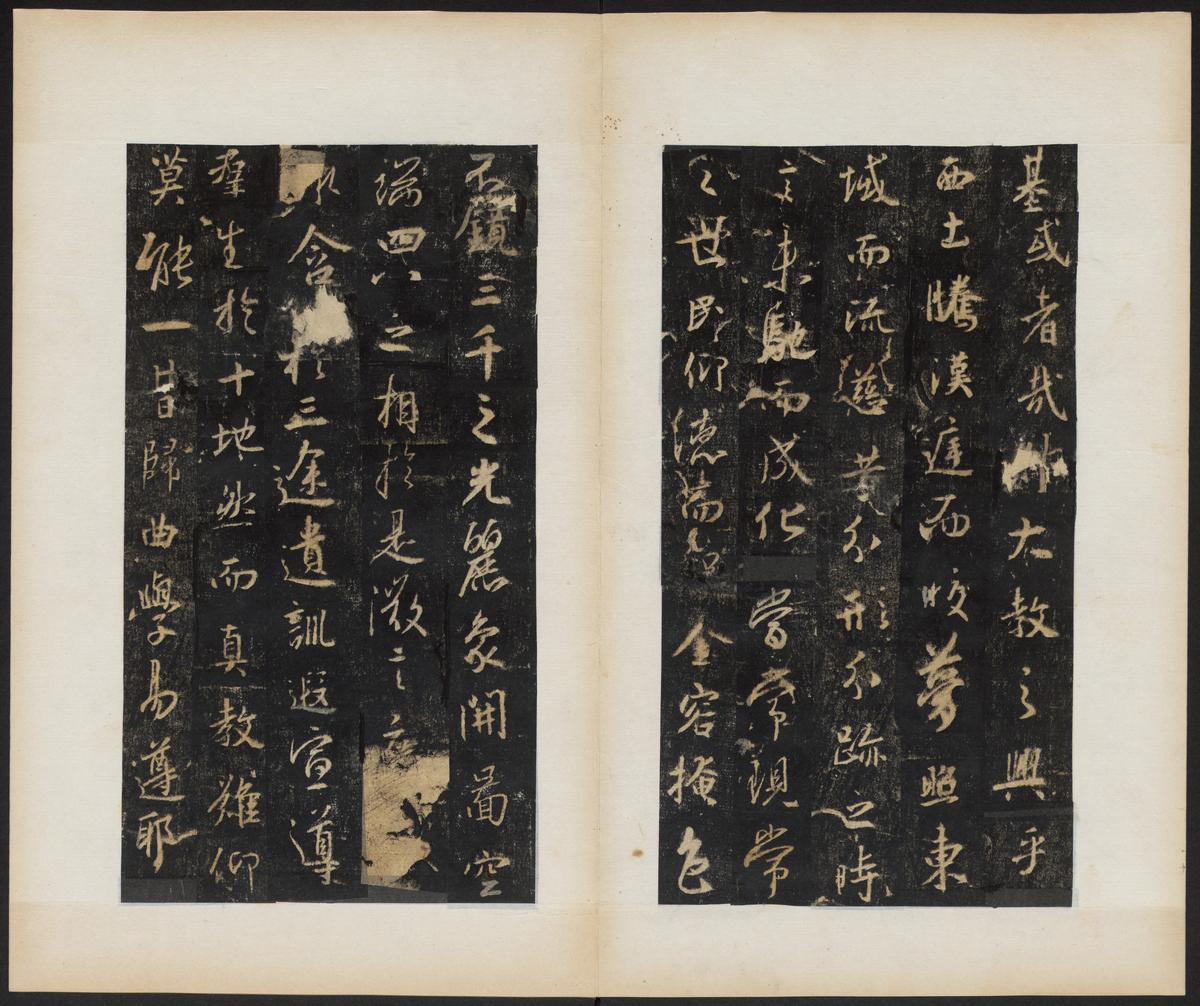 基或者哉大教之興乎
西土騰漢庭而皎夢照東
域而流慈昔分形分跡之時
言未馳而成化當常現常
之世民仰德而知金容掩色
不鏡三千之光麗象開圖空
端四八之相於是微言廣
含於三途遺訓遐宣導
羣生於十地然而真教難仰
莫能一其旨歸曲學易遵耶